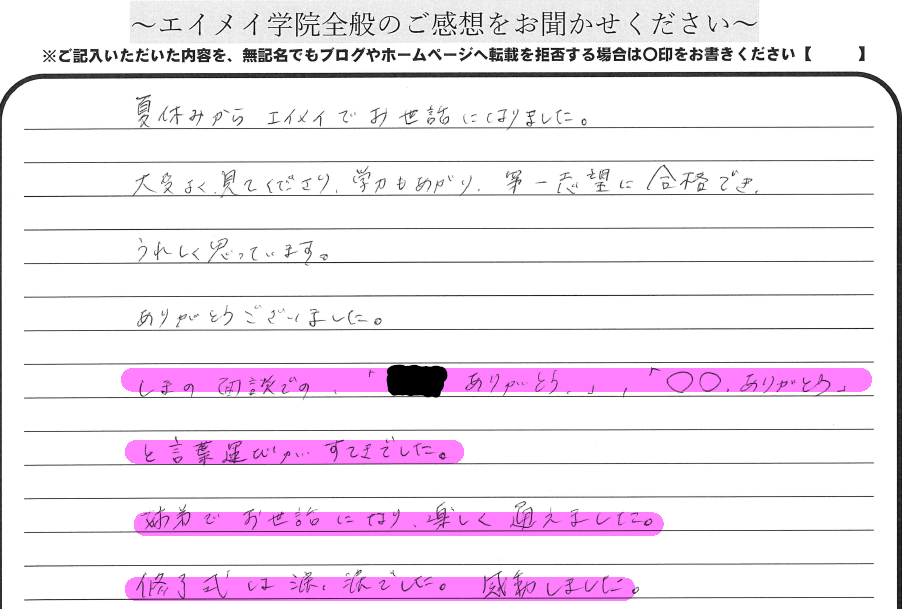 ～エイメイ学院全般のご感想をお聞かせください～
※ご記入いただいた内容を、無記名でもブログやホームページへ転載を拒否する場合は〇印をお書きください【　　】
夏休みから エイメイでお世話になりました。
大変よく見てくださり、学力もあがり、第一志望に合格でき、
うれしく思っています。
ありがとうございました。
面談での、「 ありがとう。」、「〇〇、ありがとう」
と言葉運びが すてきでした。
姉弟で お世話になり、楽しく通えました。
修了式は涙、涙でした。 感動しました。